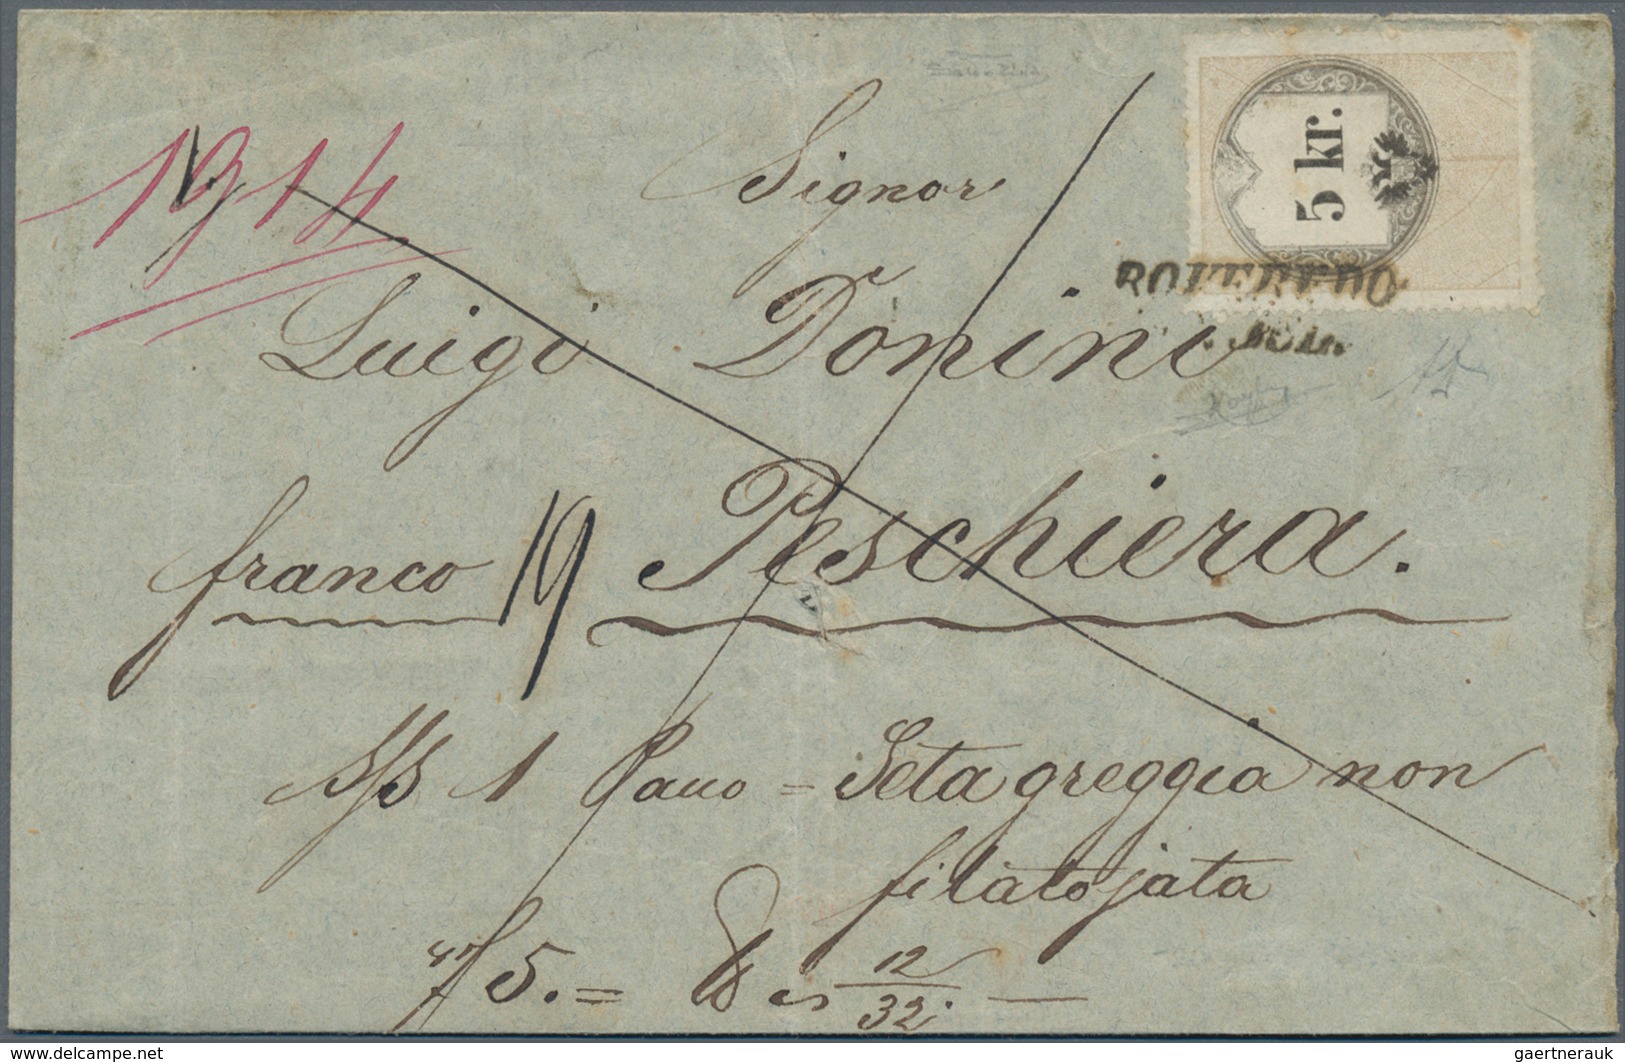 1914
Signor
5 kr.
ROVEREDO
Luigi Donini
franco 19 Peschiera.
1 Pacco = Seta greggia non
filatojata
f 5. = 12/32
www.delcampe.net
gaertnerauk